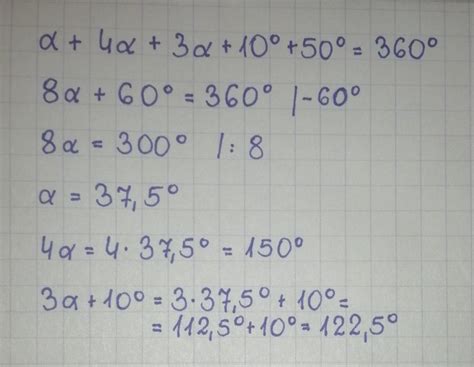 α + 4α + 3α + 10° + 50° = 360°
8α + 60° = 360° /-60°
8α = 300° /: 8
α = 37,5°
4α = 4 · 37,5° = 150°
3α + 10° = 3 · 37,5° + 10° =
= 112,5° + 10° = 122,5°